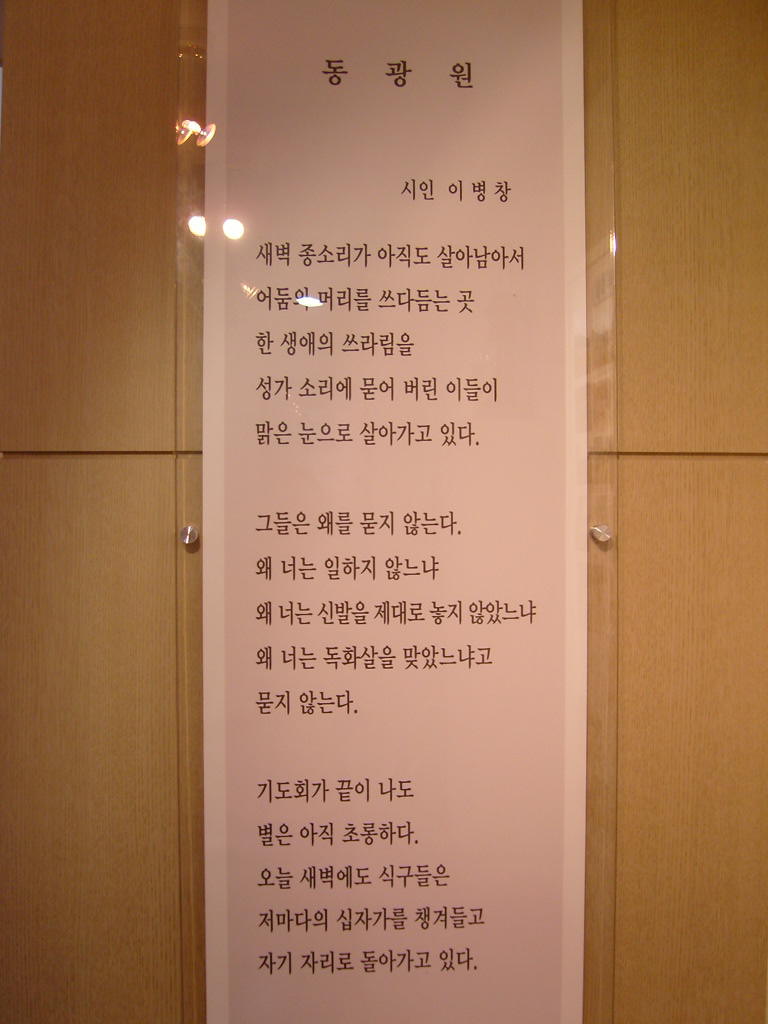 동 광 원
시인 이 병 창
새벽 종소리가 아직도 살아남아서
어둠의 머리를 쓰다듬는 곳
한 생애의 쓰라림을
성가 소리에 묻어 버린 이들이
맑은 눈으로 살아가고 있다.
그들은 왜를 묻지 않는다.
왜 너는 일하지 않느냐
왜 너는 신발을 제대로 놓지 않았느냐
왜 너는 독화살을 맞았느냐고
묻지 않는다.
기도회가 끝이 나도
별은 아직 초롱하다.
오늘 새벽에도 식구들은
저마다의 십자가를 챙겨들고
자기 자리로 돌아가고 있다.